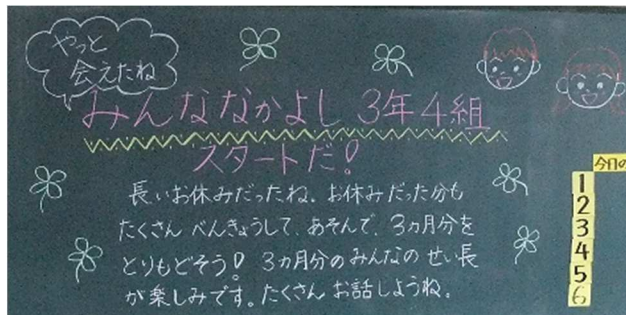 やっと
会えたね
みんななかよし 3年4組
スタートだ!
長いお休みだったね。お休みだった分も
たくさん べんきょうして、あそんで、3ヵ月分を
とりもどそう! 3ヵ月分のみんなの せい長
が楽しみです。たくさん お話しようね。
今日の
1
2
3
4
5
6